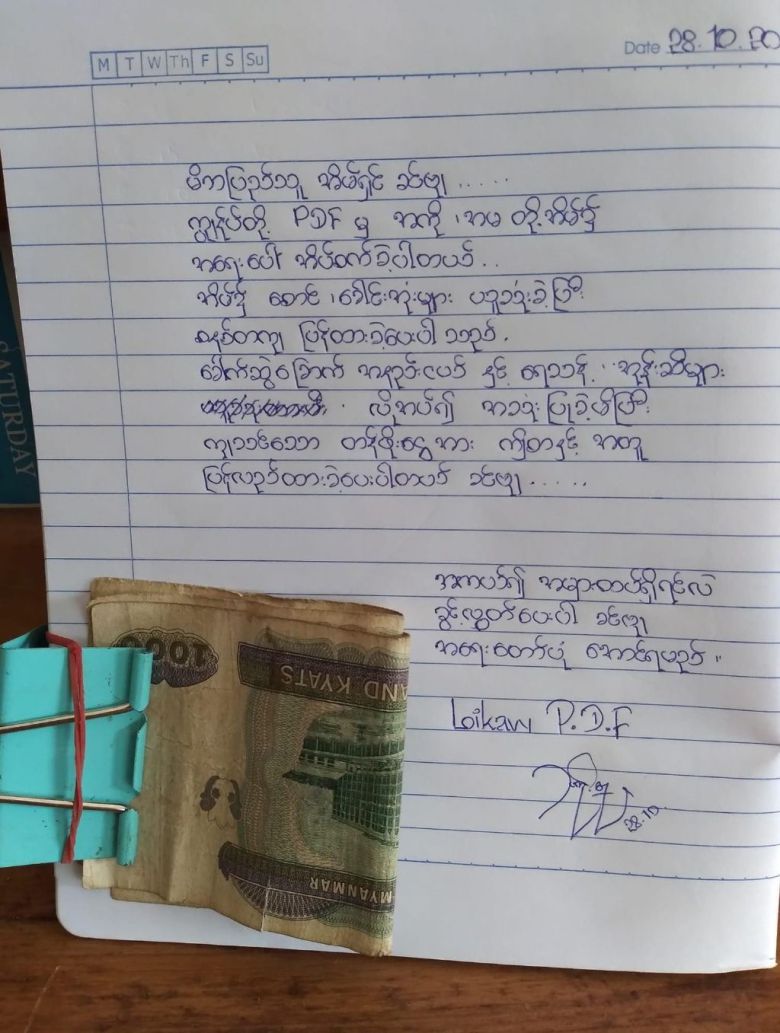 M T W Th F S Su
Date 28.10.20
မိကပြည်သူ အိမ်ရှင် ခင်ဗျ.....
ကျွန်ုပ်တို့ PDF မှ အကို၊အမ တို့အိမ်၌
အရေးပေါ် အိပ်စက်ခဲ့ပါတယ်..
အိမ်၌ စောင်၊ခေါင်းအုံးများ ယူသုံးခဲ့ပြီး
နေ့စ်တကျ ပြန်ထားခဲ့ပေးပါသည်.
ခေါက်ဆွဲခြောက် အနည်းငယ် နှင့် ရေသန့်၊အုန်းဆီများ
လိုအပ်၍ အသုံးပြုခဲ့ပြီး
ကျသင့်သော တန်ဖိုးငွေအား ဤစာနှင့် အတူ
ပြန်လည်ထားခဲ့ပေးပါတယ် ခင်ဗျ......
အကယ်၍ အမှားတပ်ရှိရင်လဲ
ခွင့်လွှတ်ပေးပါ ခင်ဗျ
အရေးတော်ပုံ အောင်ရမည်။
Loikaw P.D.F
28.10
1000
AND KYATS
MYANMAR
SATURDAY